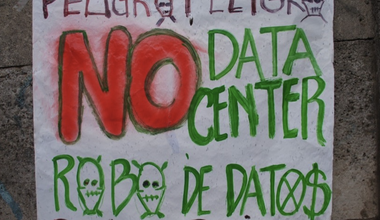 PELIGRO
NO DATA
CENTER
ROBO DE DATO$